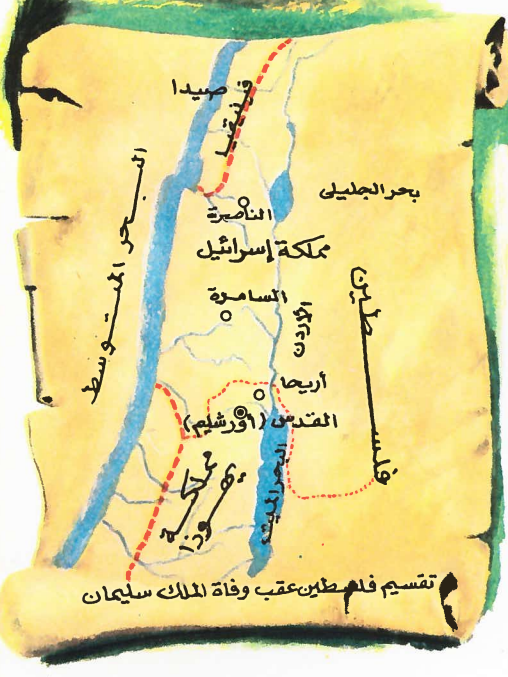 صيدا
فينيقيا
البحر المتوسط
بحر الجليلي
الناصرة
مملكة إسرائيل
السامرة
الأردن
فلسطين
أريحا
القدس (أورشليم)
البحر الميت
مملكة
يهوزا
تقسيم فلسطين عقب وفاة الملك سليمان